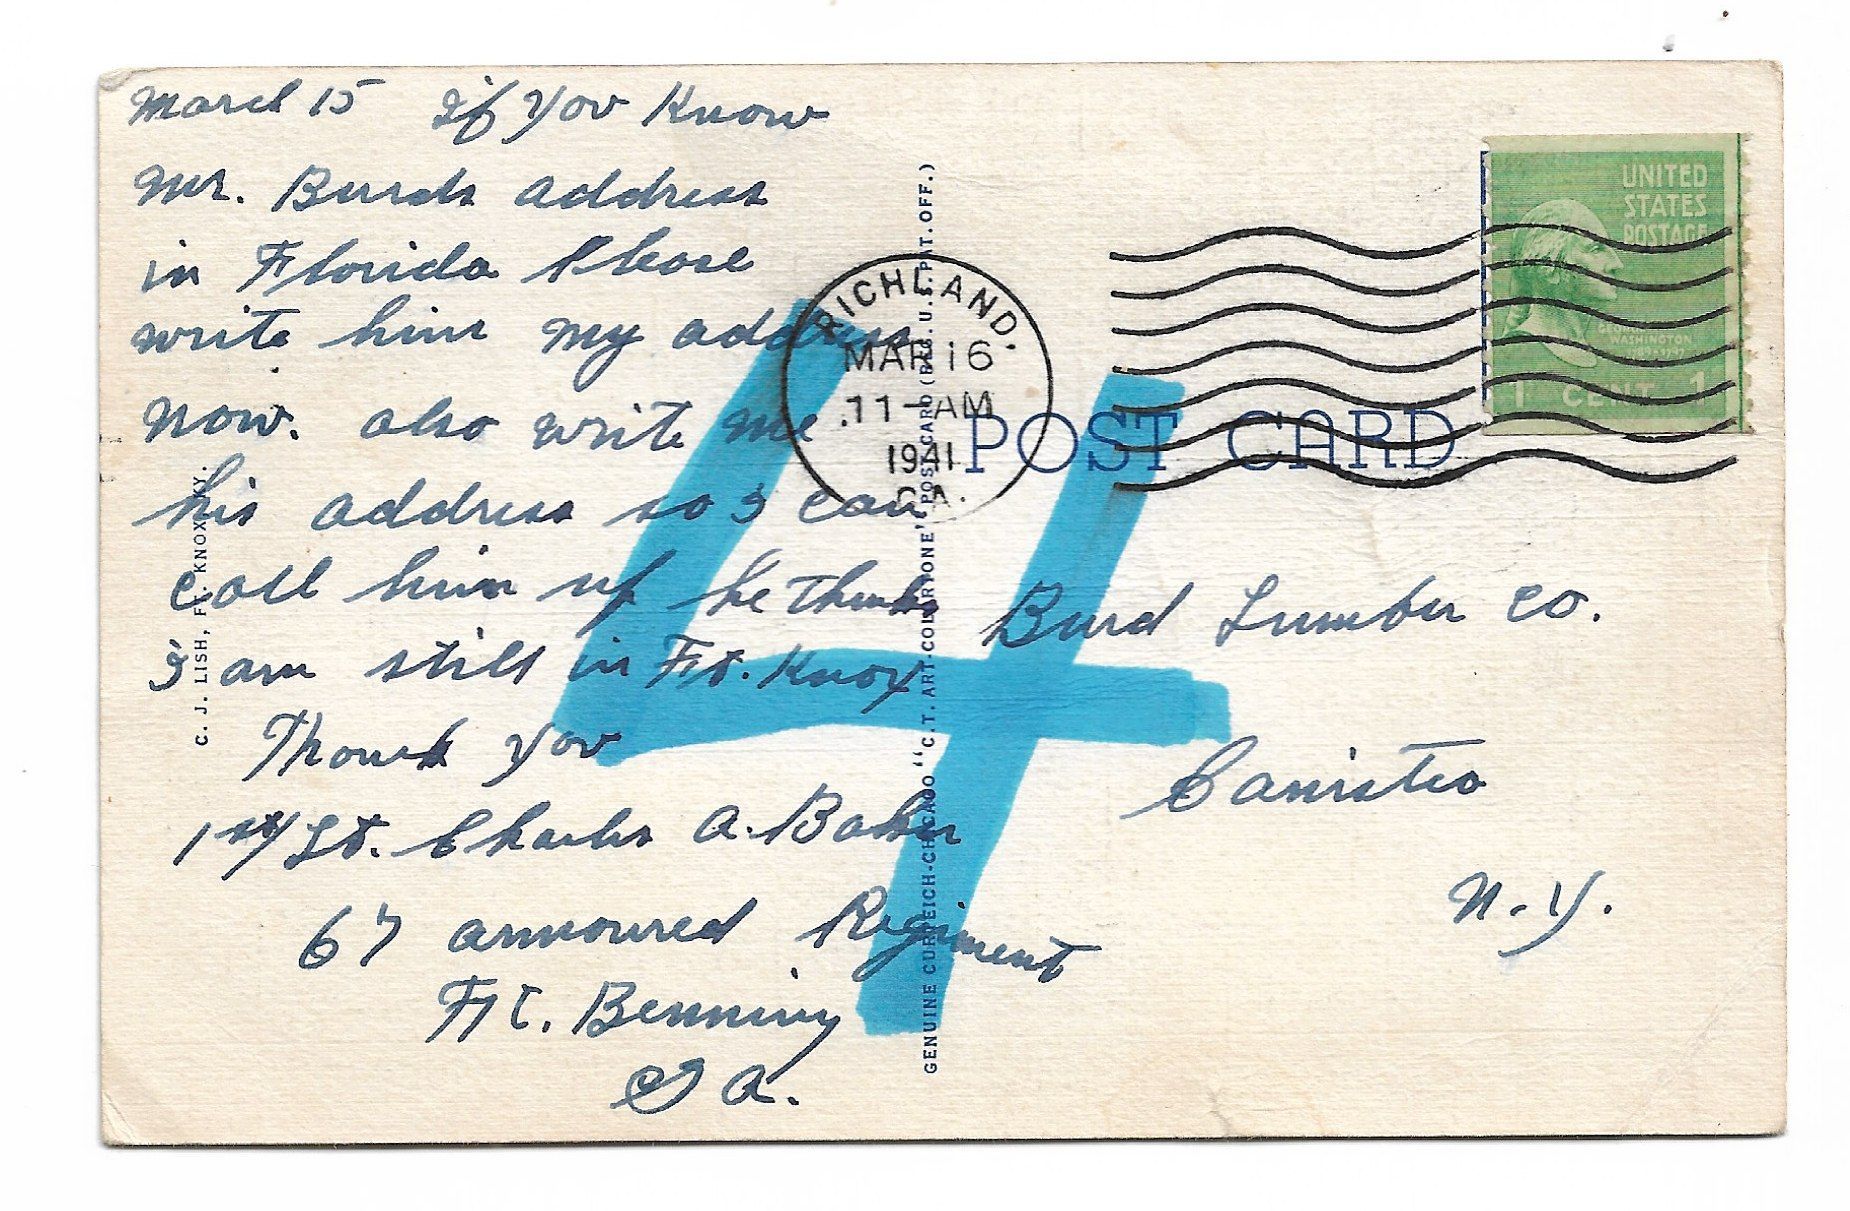 March 15 If you Know
Mr. Burds address
in Florida Please
write him my address
now. also write me
his address so I can
call him up he thinks
I am still in Ft. Knox
Thank you
1st/Lt. Charles A. Baker
67 armoured Regiment
Ft. Benning
Ga.
C. J. LISH, FT. KNOX, KY.
GENUINE CURTEICH-CHICAGO "C.T. ART-COLORTONE" POST CARD (REG. U.S. PAT. OFF.)
RICHLAND.
MAR 16
11-AM
1941
GA.
POST CARD
UNITED
STATES
POSTAGE
GEORGE
WASHINGTON
1 CENT 1
4
Burd Lumber Co.
Canisteo
N.Y.